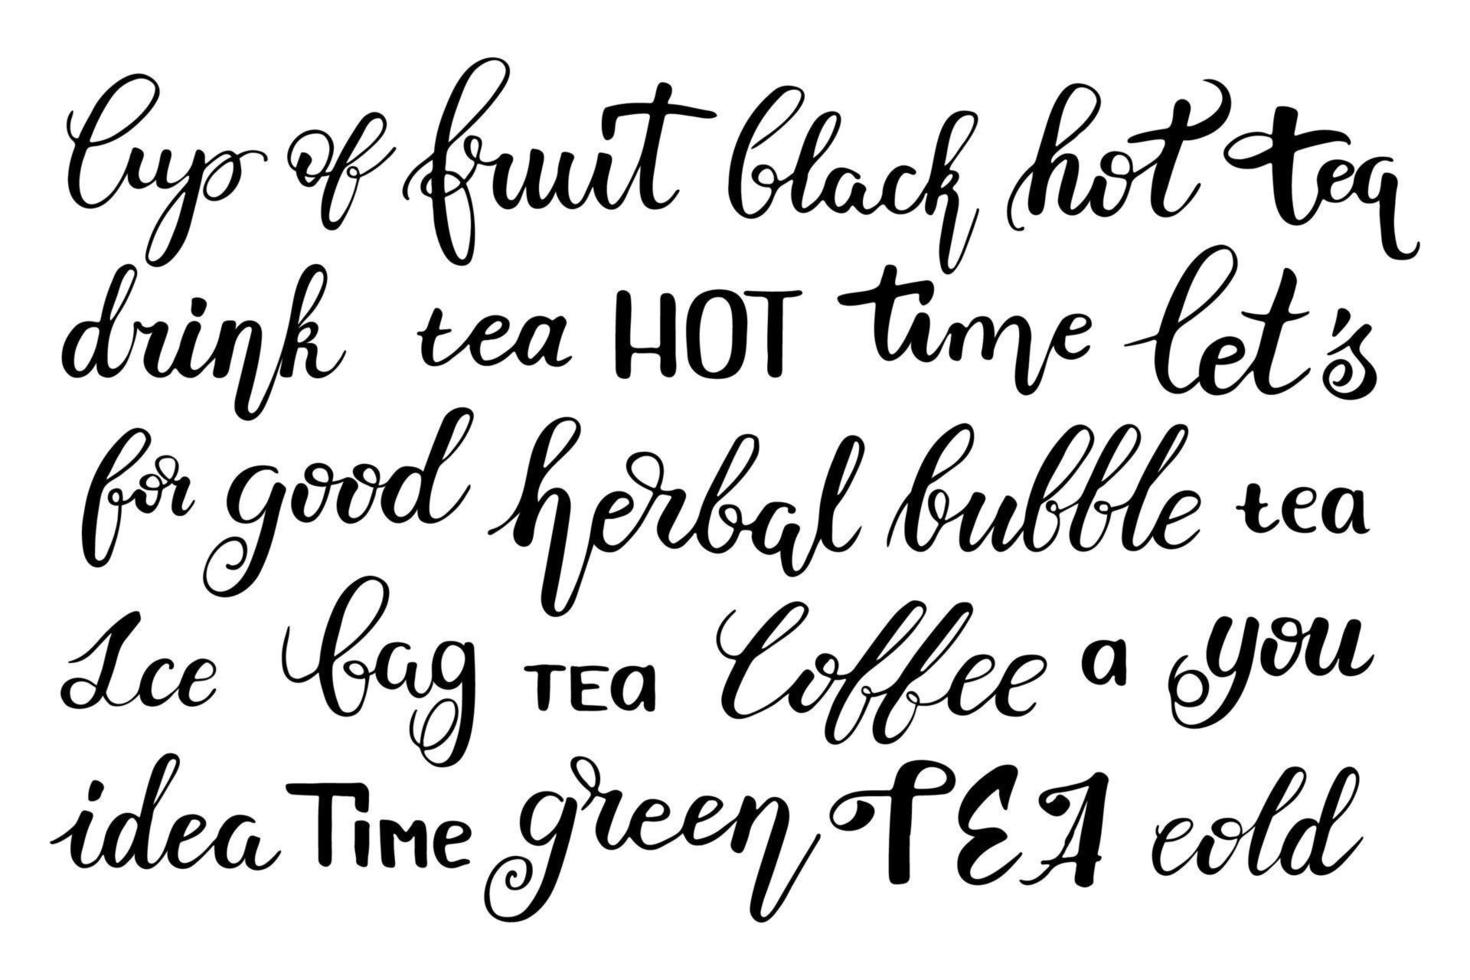 Cup of fruit black hot tea
drink tea HOT time let's
for good herbal bubble tea
Ice bag TEa Coffee a you
idea Time green TEA cold